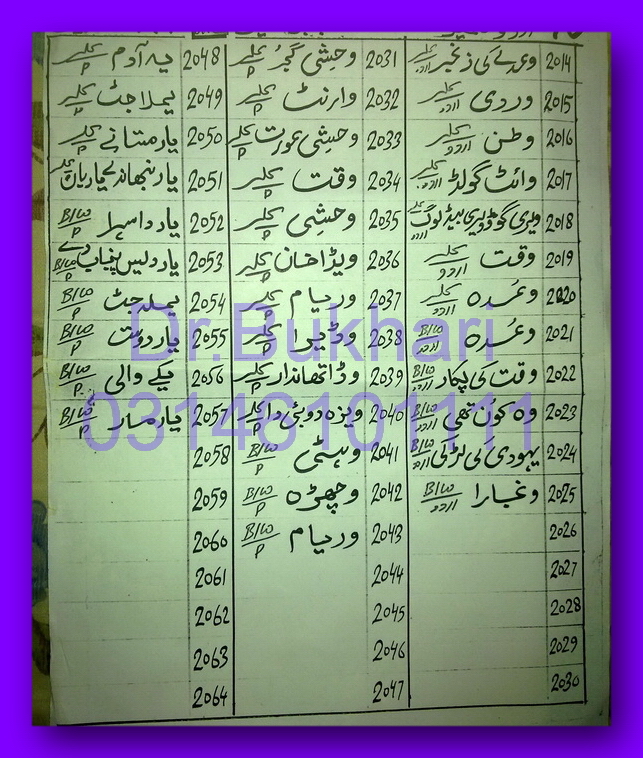 2014 وعدے کی زنجیر کلر اردو
2015 وردی کلر اردو
2016 وطن کلر اردو
2017 وائٹ گولڈ کلر اردو
2018 ویری گڈ ویری بیڈ لوگ کلر اردو
2019 وقت کلر اردو
2020 وعدہ کلر اردو
2021 وعدہ B/W اردو
2022 وقت کی پکار B/W اردو
2023 وہ کون تھی B/W اردو
2024 یہودی کی لڑکی B/W اردو
2025 وغبارا B/W اردو
2026
2027
2028
2029
2030
2031 وحشی گجر کلر P
2032 وارنٹ کلر P
2033 وحشی عورت کلر P
2034 وقت کلر P
2035 وحشی کلر P
2036 ویڈا خان کلر P
2037 وریام کلر P
2038 وڈیرا کلر P
2039 وڈا تھانیدار کلر P
2040 ویزہ دوبئی دا کلر P
2041 وہٹی B/W P
2042 وچھڑہ B/W P
2043 وریام B/W P
2044
2045
2046
2047
2048 یہ آدم کلر P
2049 یملا جٹ کلر P
2050 یار مستانے کلر P
2051 یار نبھاندے یاریاں کلر
2052 یار دا سہرا B/W P
2053 یار دیس پنجاب دے B/W P
2054 یملا جٹ B/W P
2055 یار دوست B/W P
2056 یکے والی B/W P
2057 یار مار B/W P
2058
2059
2060
2061
2062
2063
2064
Dr.Bukhari
03146101111